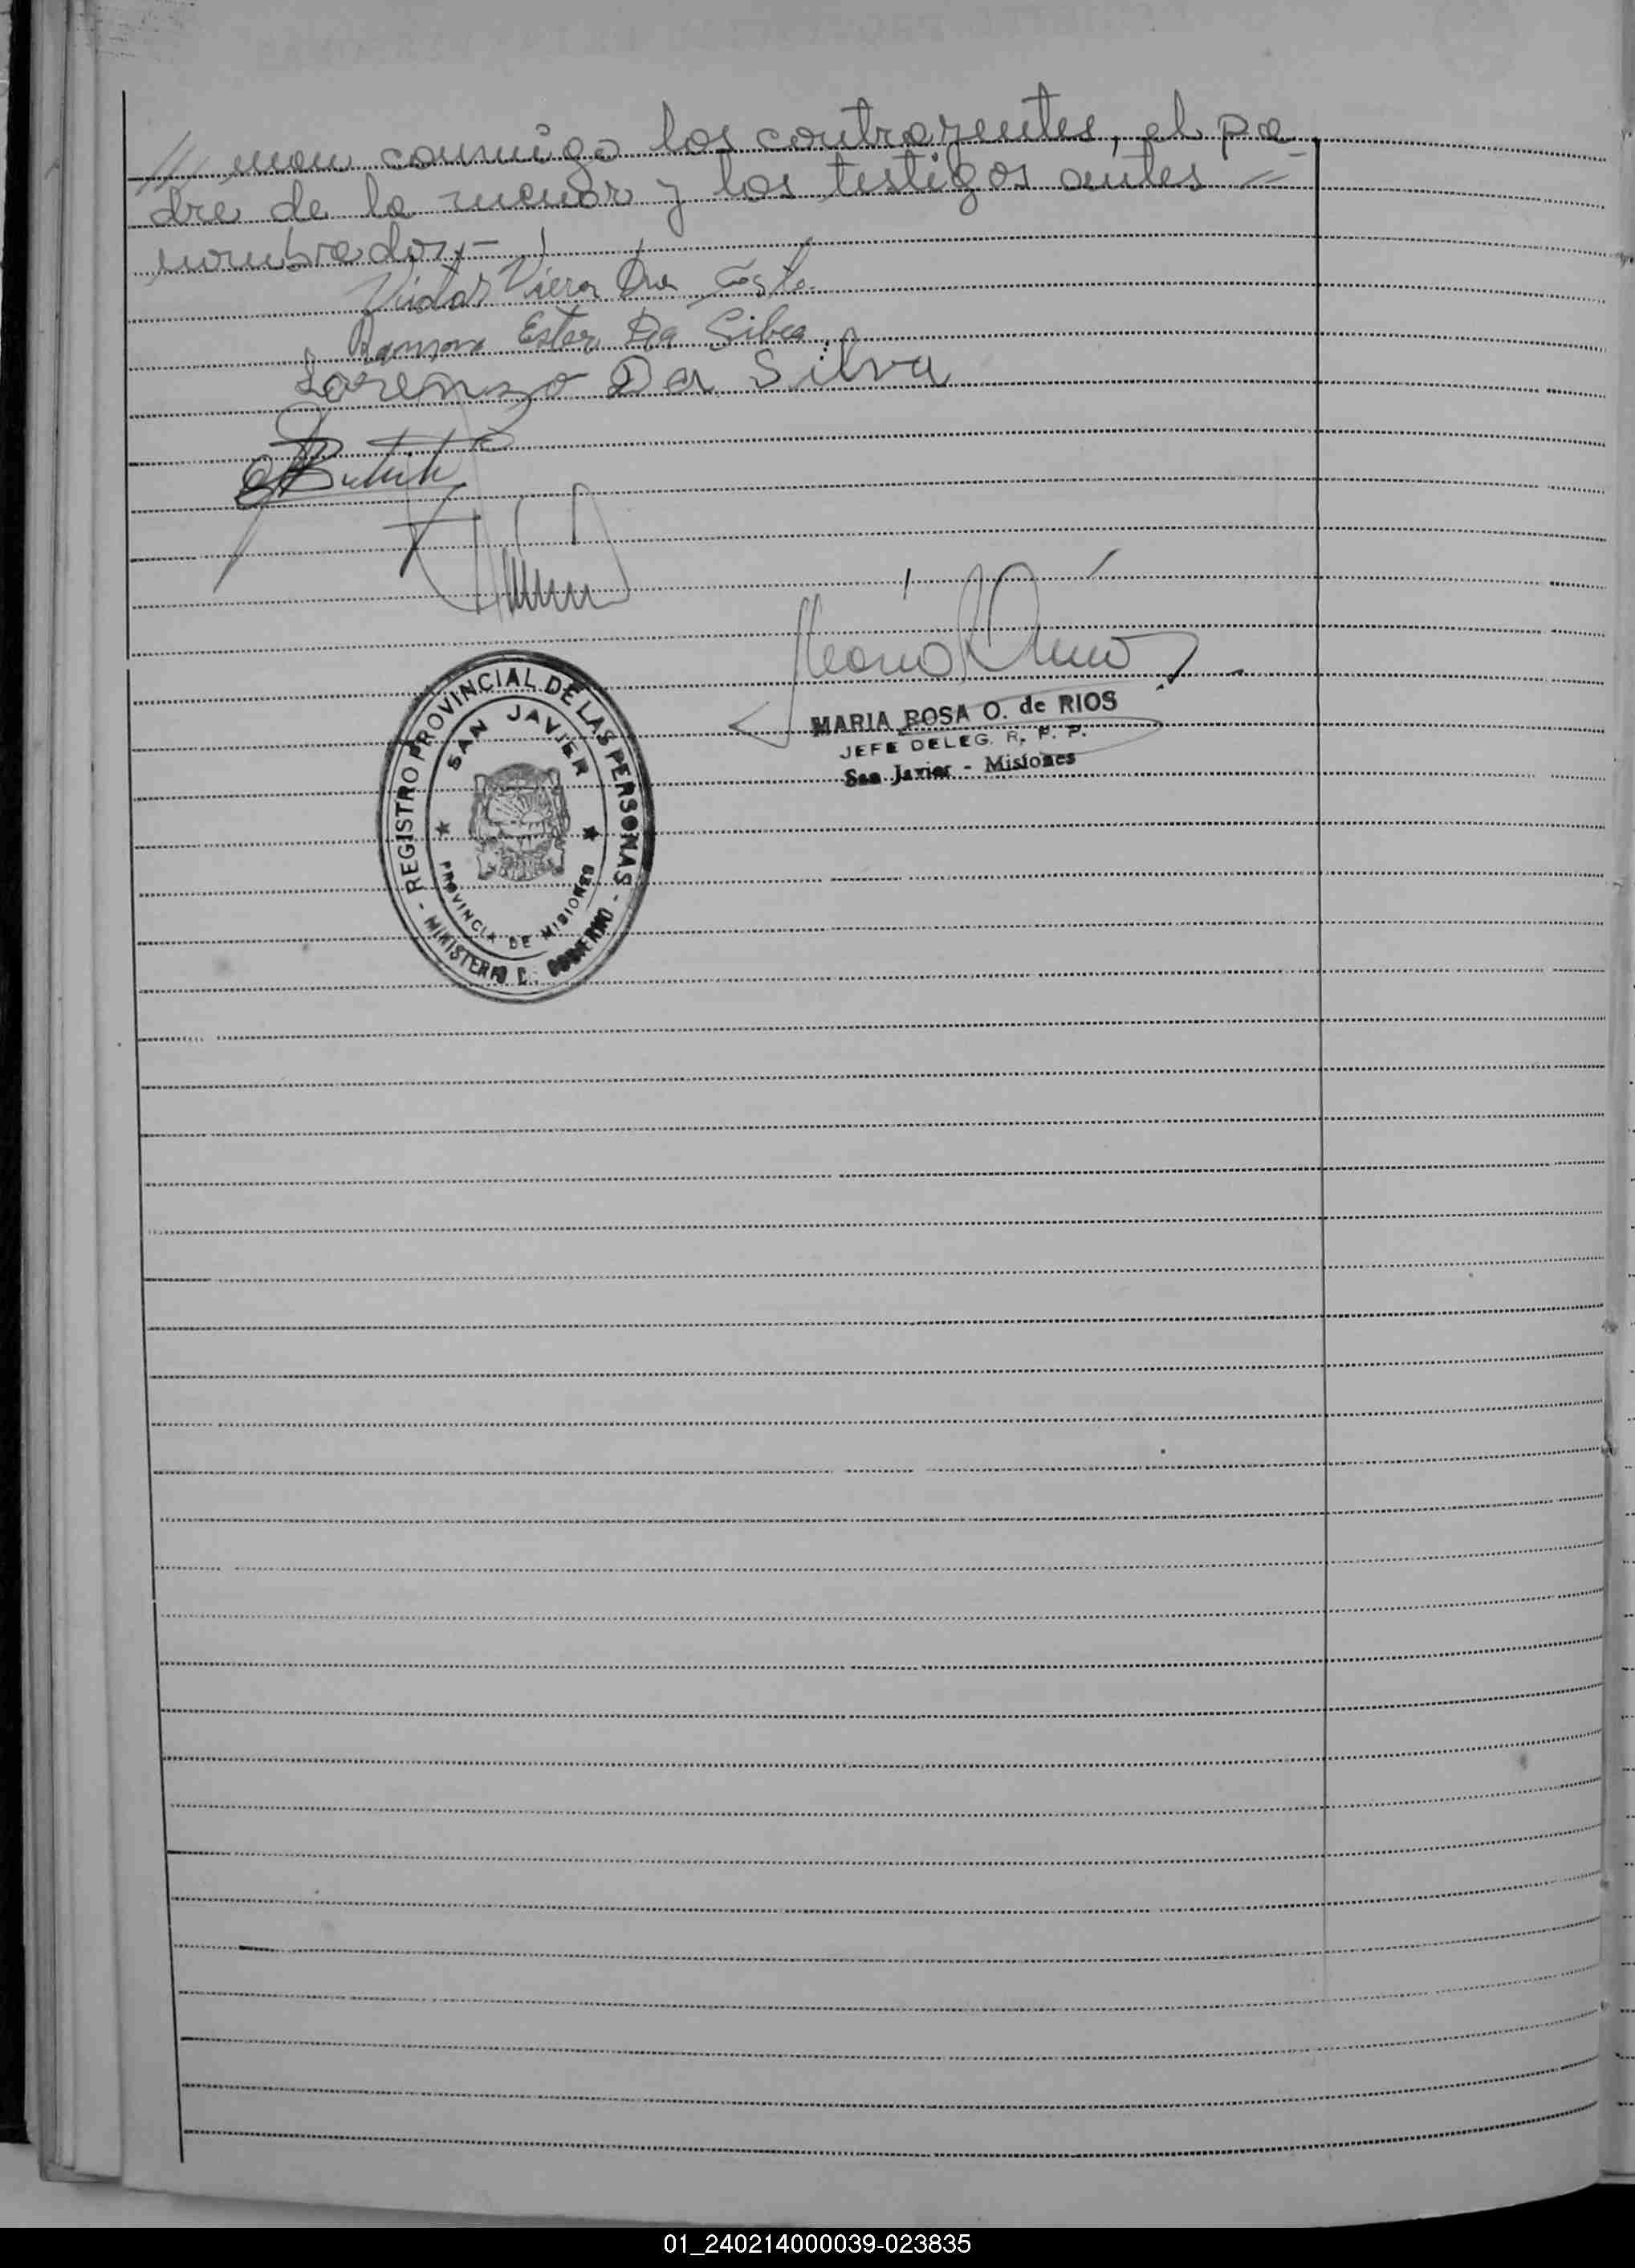 // man conmigo los contrayentes, el pa
dre de la menor y los testigos antes =
nombrados,-
Viera Da Costa
Ramona Ester Da Silva
Lorenzo Da Silva
REGISTRO PROVINCIAL DE LAS PERSONAS
SAN JAVIER
PROVINCIA DE MISIONES
- MINISTERIO DE GOBIERNO -
MARIA ROSA O. de RIOS
JEFE DELEG. R. P. P.
San Javier - Misiones
01_240214000039-023835